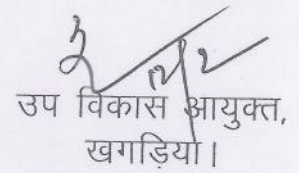 उप विकास आयुक्त,
खगड़िया।